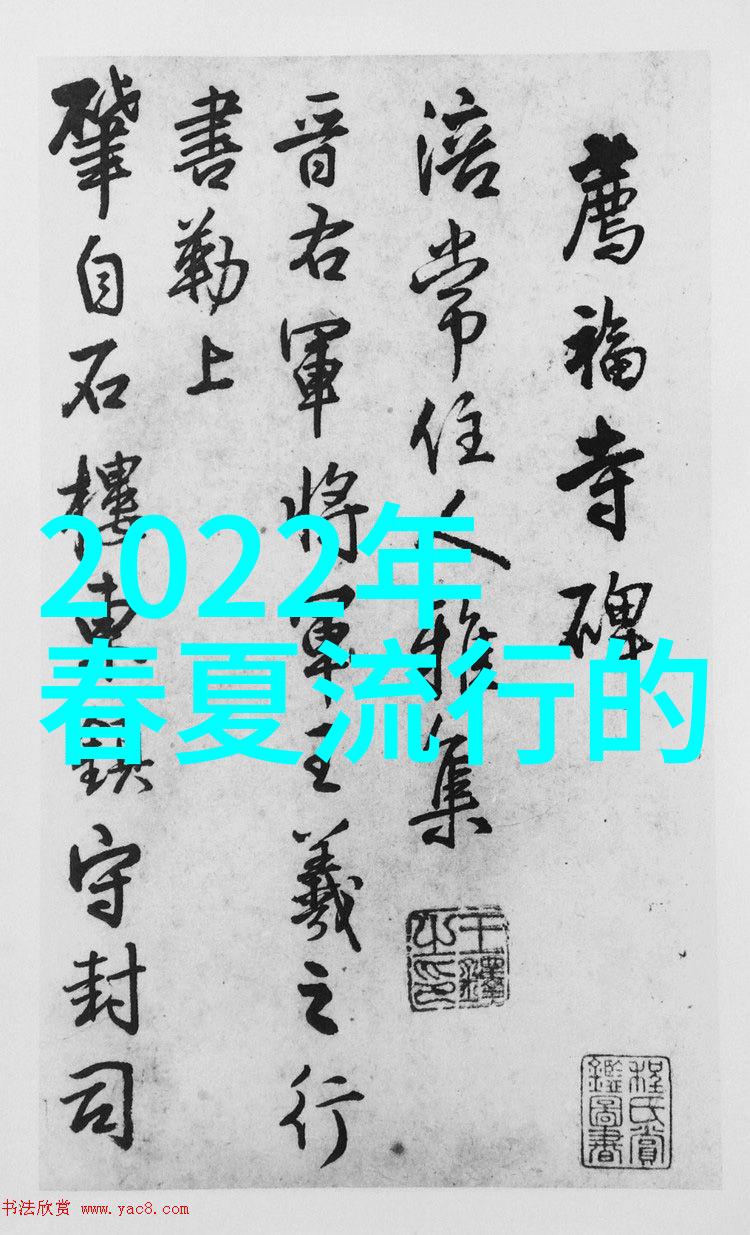 薦福寺碑
涪常住人雅集
王鐸之印
程氏賞鑑圖書
晉右軍將軍王羲之行
書勒上
肇自石樓東守封司
2022年
春夏流行的
书法欣赏 www.yac8.com